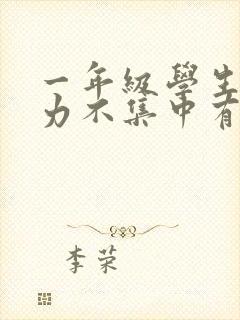 一年級學生
力不集中有
李荣